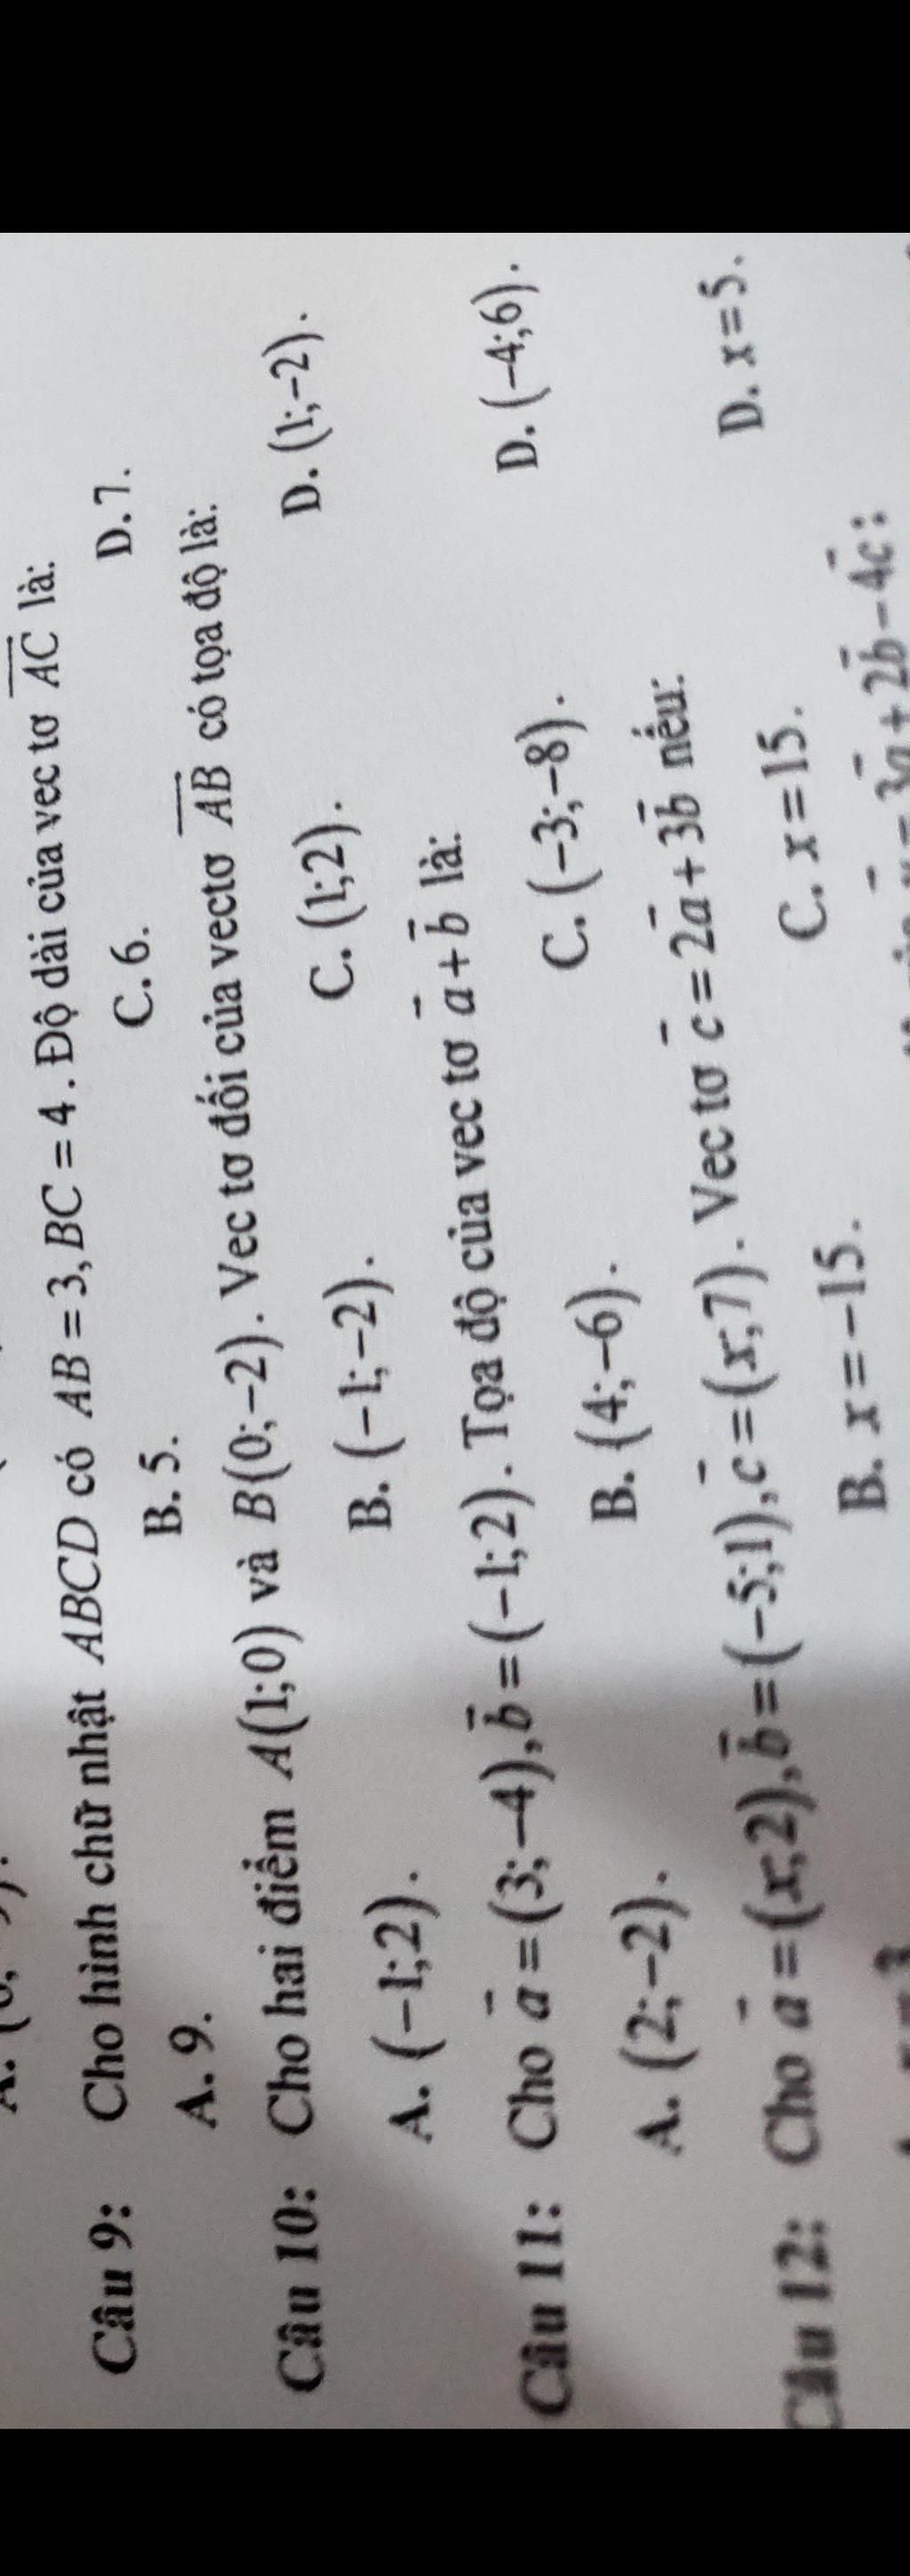 Câu 9: Cho hình chữ nhật ABCD có AB = 3, BC = 4. Độ dài của vec tơ \overrightarrow{AC} là:
A. 9. B. 5. C. 6. D. 7.
Câu 10: Cho hai điểm A(1;0) và B(0;−2). Vec tơ đối của vectơ \overrightarrow{AB} có tọa độ là:
A. (−1;2). B. (−1;−2). C. (1;2). D. (1;−2).
Câu 11: Cho \vec{a} = (3;−4), \vec{b} = (−1;2). Tọa độ của vec tơ \vec{a} + \vec{b} là:
A. (2;−2). B. (4;−6). C. (−3;−8). D. (−4;6).
Câu 12: Cho \vec{a} = (x;2), \vec{b} = (−5;1), \vec{c} = (x;7). Vec tơ \vec{c} = 2\vec{a} + 3\vec{b} nếu:
B. x = −15. C. x = 15. D. x = 5.
3\vec{a} + 2\vec{b} − 4\vec{c} :